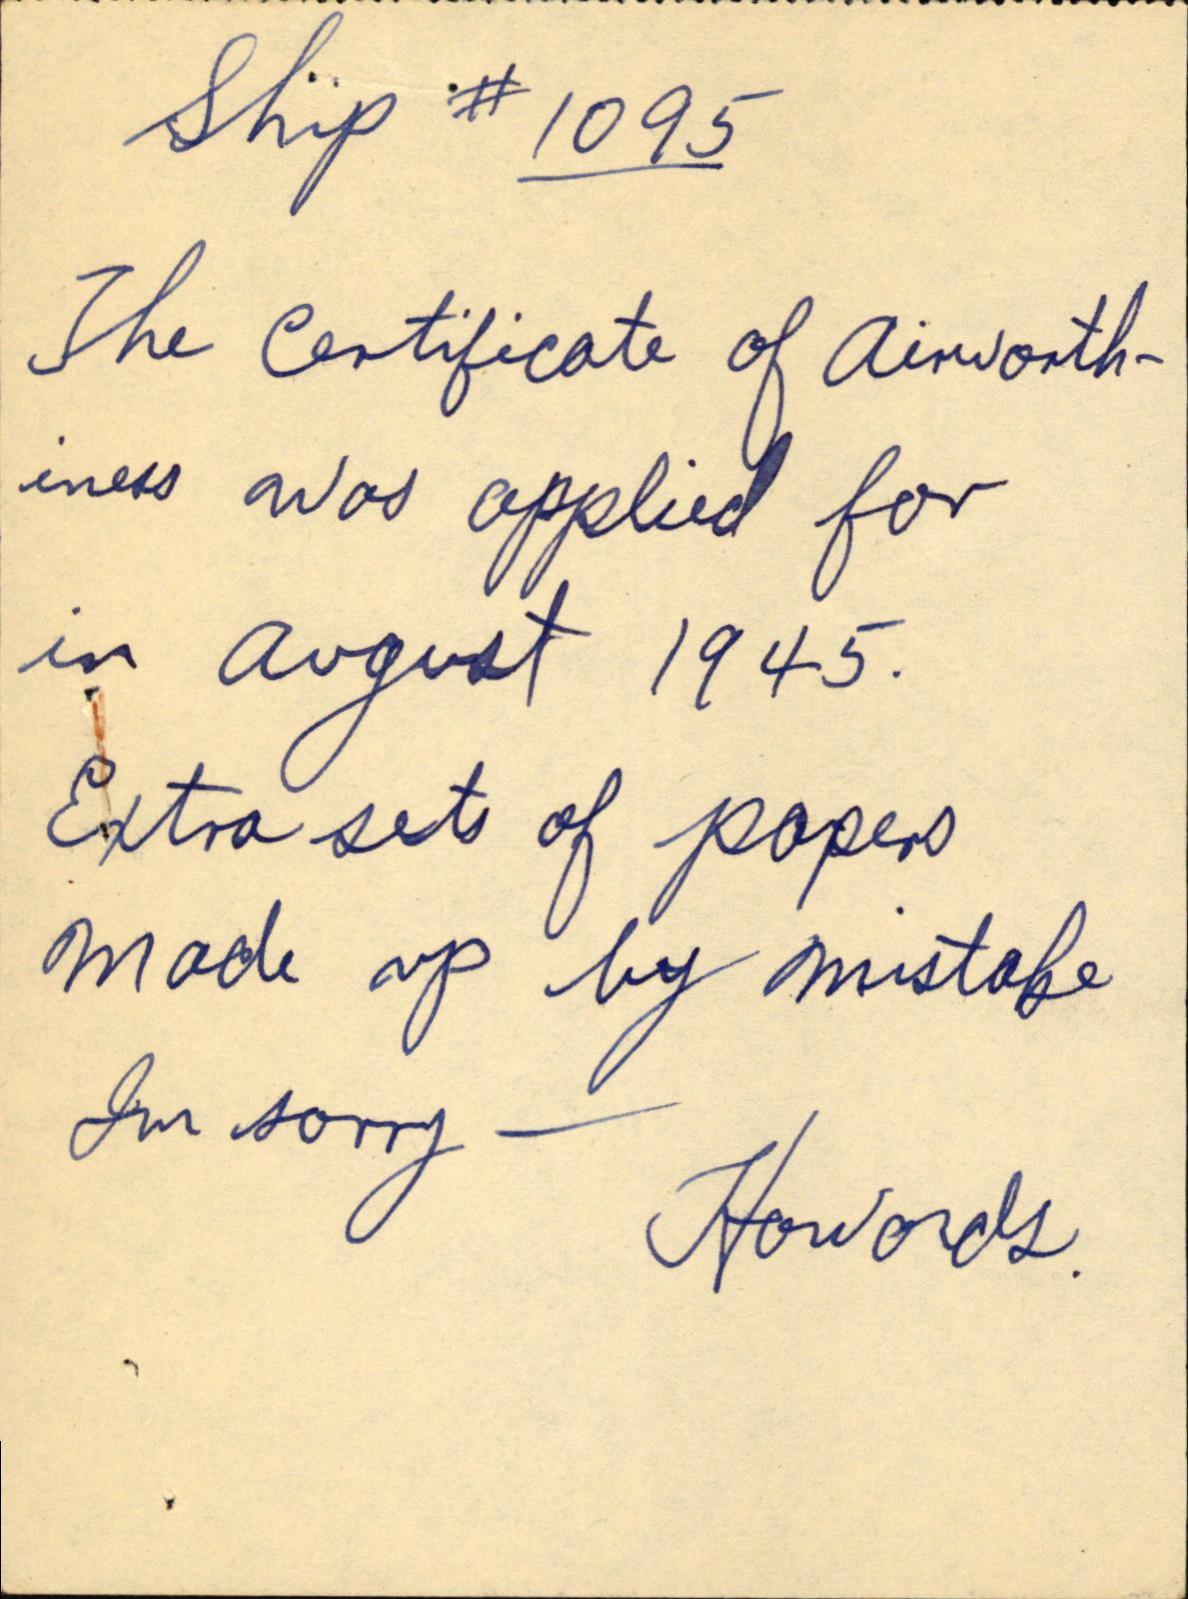 Ship # 1095
The Certificate of Airworth-
iness was applied for
in August 1945.
Extra sets of papers
Made up by mistake
Im sorry —
Howards.